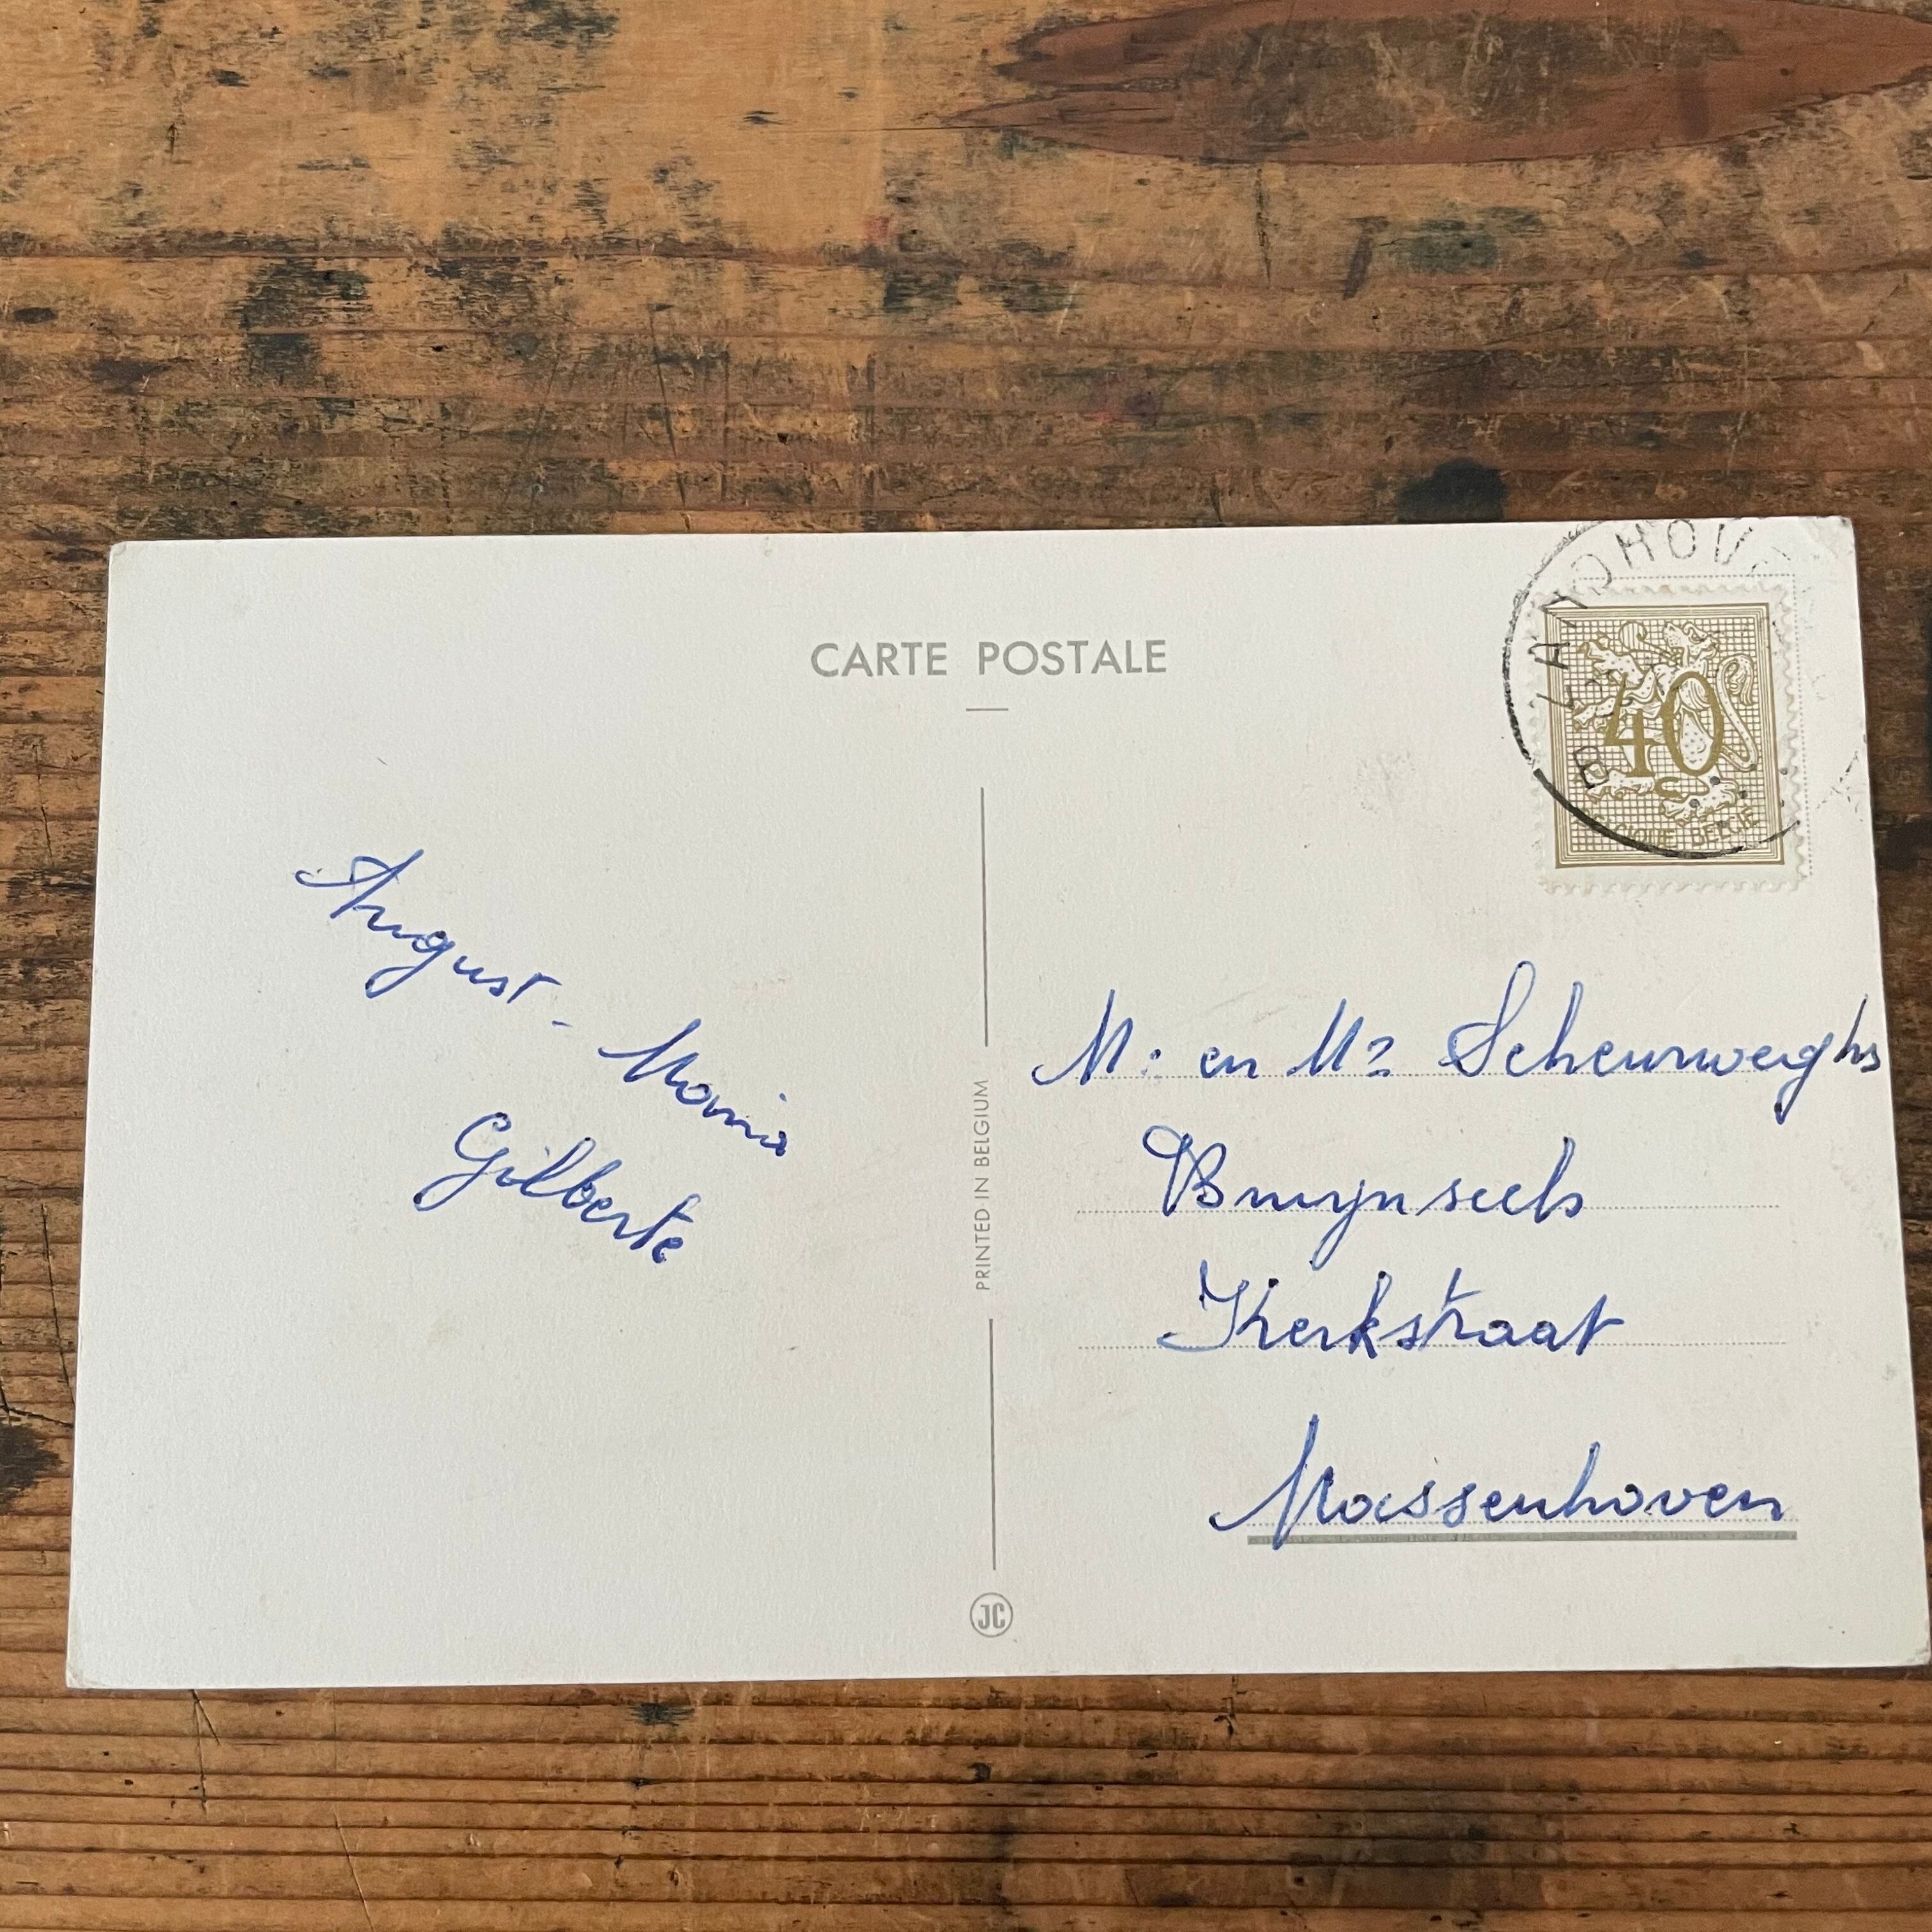 CARTE POSTALE
40
BELGIE
August - Maria
Gilberte
PRINTED IN BELGIUM
M: en Mz Scheurweghs
Bruynseels
Kerkstraat
Massenhoven
JC